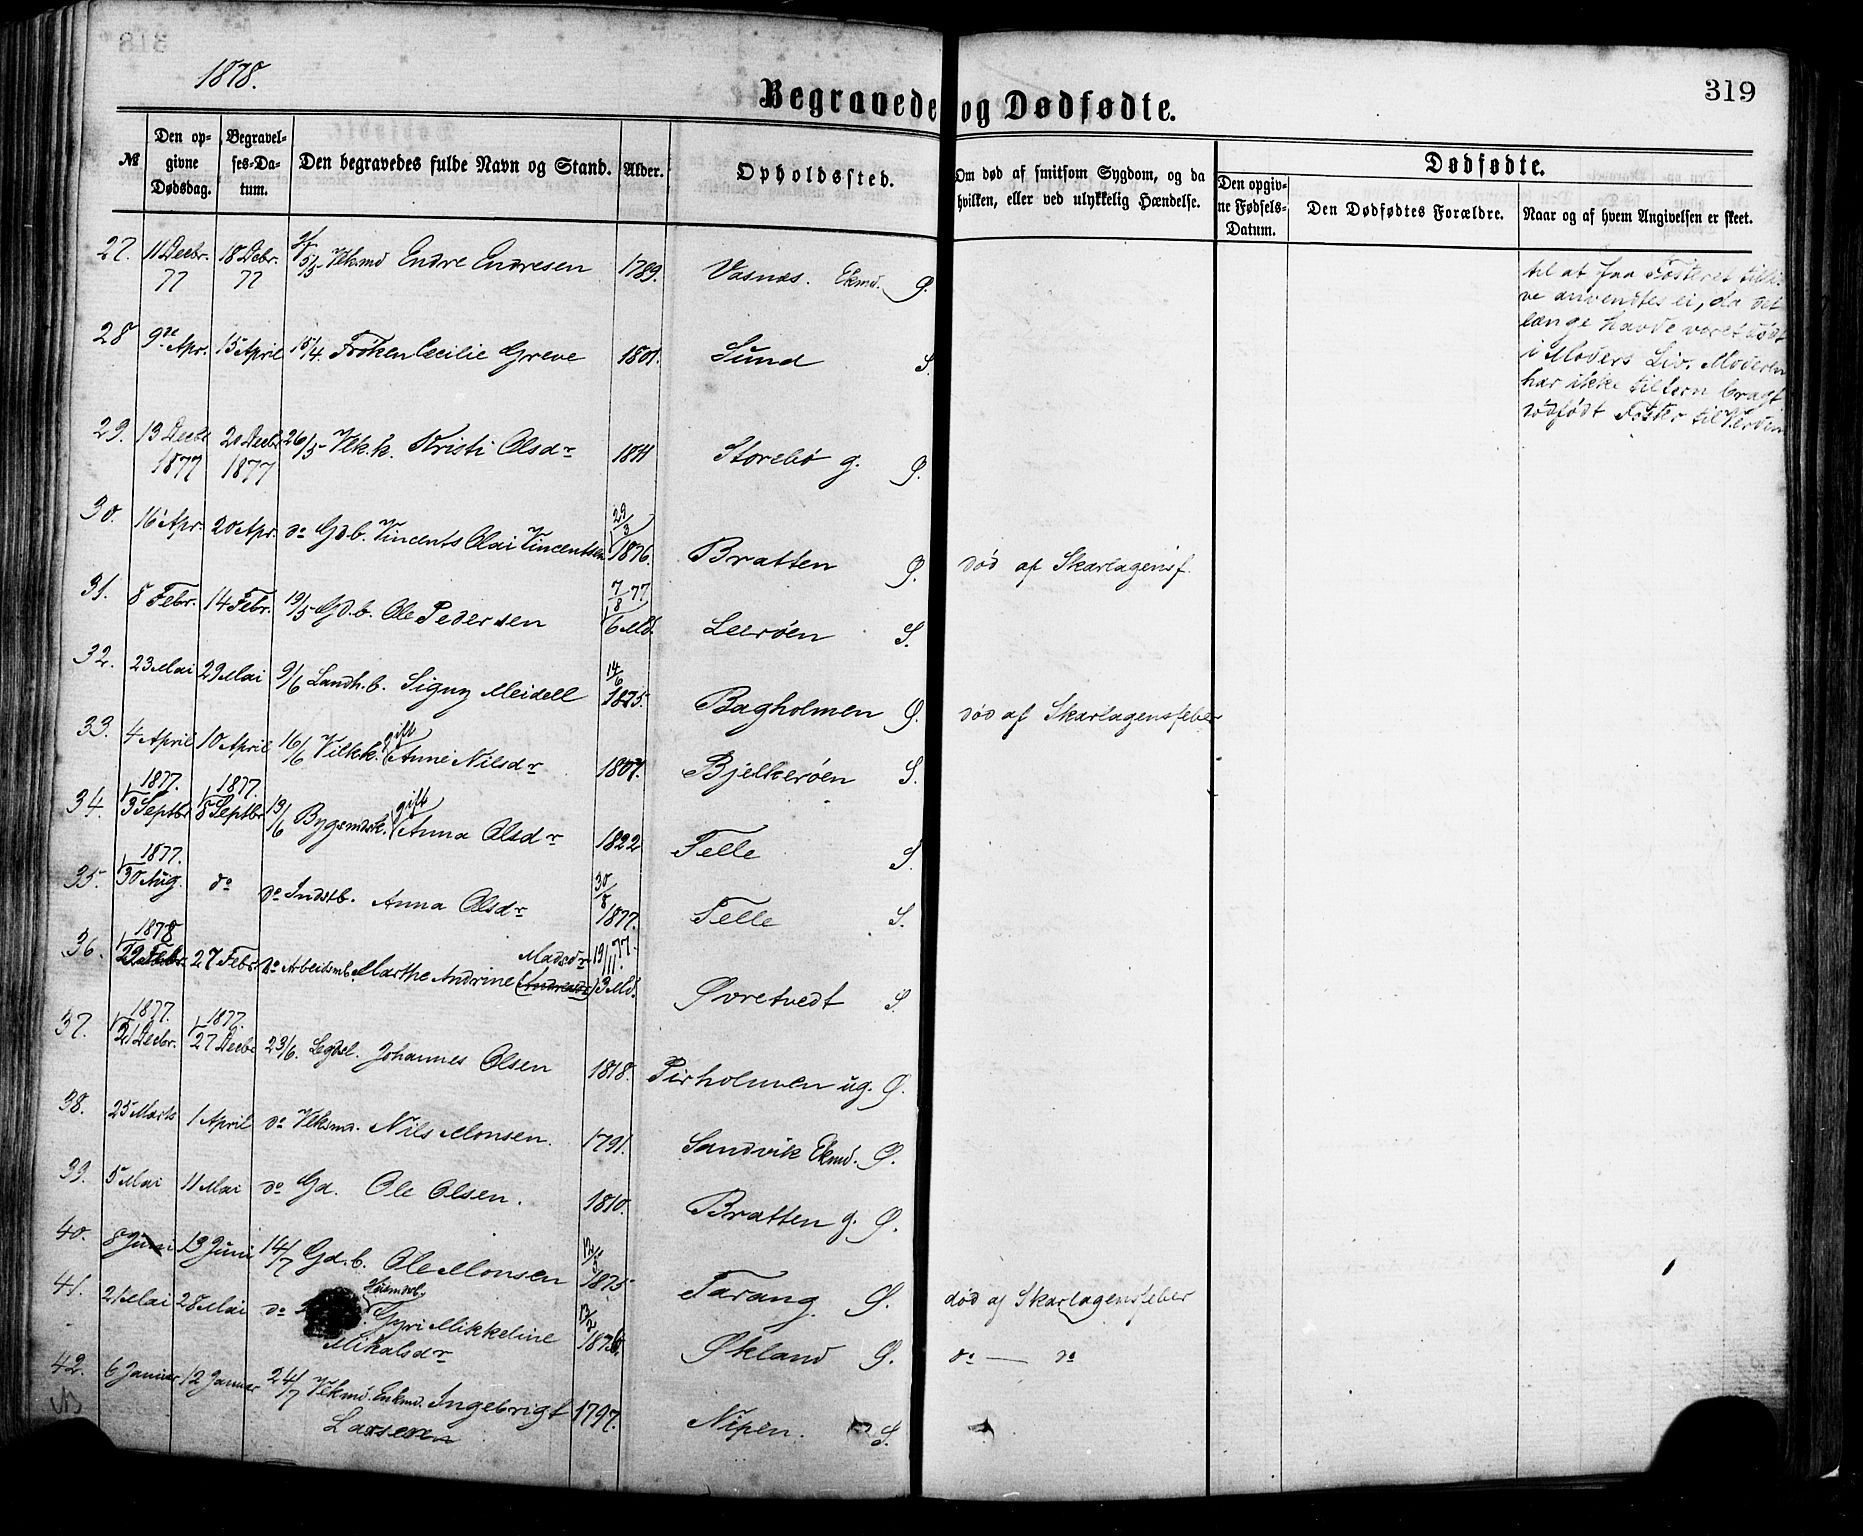 1878.
Begravede og Dødfødte.
319
№
Den opgivne Dødsdag.
Begravelses-Datum.
Den begravedes fulde Navn og Stand.
Alder.
Opholdssted.
Om død af smitsom Sygdom, og da hvilken, eller ved ulykkelig Hændelse.
Dødfødte.
Den opgivne Fødsels-Datum.
Den Dødfødtes Forældre.
Naar og af hvem Angivelsen er skeet.
27. 11 Decbr. 77 18 Debr. 77 Vekmd Endre Endresen 1789. Vasnæs. Ekmd. Ø.
28 9de Apr. 15 April 15/4. Frøken Cecilie Greve 1801. Sund S.
29. 13 Decbr 1877 20 Decbr 1877 26/5 Vek.k. Kristi Olsdr 1811 Storebø g. Ø.
30. 16 Apr. 20 Apr. do Gd.b. Vincents Olai Vincentsen 29/3 1876. Bratten Ø. død af Skarlagensf.
31. 8 Febr. 14 Febr. 19/5 Gd.b. Ole Pedersen 7/8 77 6 Md. Leerøen S.
32. 23 Mai 29 Mai 9/6 Landh.b. Signy Meidell 14/6 1875. Bagholmen Ø. død af Skarlagensfeber
33. 4 April 10 April 16/6 Vilkk. (gift) Anne Nilsdr 1807. Bjelkerøen S.
34. 1877. 3 Septbr 1877. 8 Septbr 19/6 Bygsmdsk. (gift) Anna Olsdr 1822 Telle S.
35. 1877. 30 Aug. do do Indstb. Anna Olsdr 30/8 1877. Telle S.
36. 1878 22 Febr. 27 Febr. do Arbeidsmb. Marthe Andrine Madsdr (Andreasdr) 19/11 77. 3 Md. Øvretvedt S.
37. 1877. 21 Decbr. 1877. 27 Decbr 23/6. Legdsl. Johannes Olsen 1818. Pirholmen ug. Ø.
38. 25 Marts 1 April do Veksmd. Nils Monsen. 1791. Sandvik Ekmd. Ø.
39. 5 Mai 11 Mai do Gd. Ole Olsen. 1810. Bratten g. Ø.
40. 8 Juni 13 Juni 14/7 Gd.b. Ole Monsen 1875 Tarang Ø. død af Skarlagensfeber
41. 21 Mai 28 Mai do Husmdsb. Gyri Mikkeline Mikalsdr 1876. Økland Ø. do — do
42. 6 Januar 12 Januar 24/7 Vekmd. Enkmd. Ingebrigt Larsen 1797. Nipen. S.
til at faa Fosteret tilli-
ve anvendtes ei, da det
længe havde været dødt
i Moders Liv. Moderen
har ikke tilforn bragt
dødfødt Foster til Verden